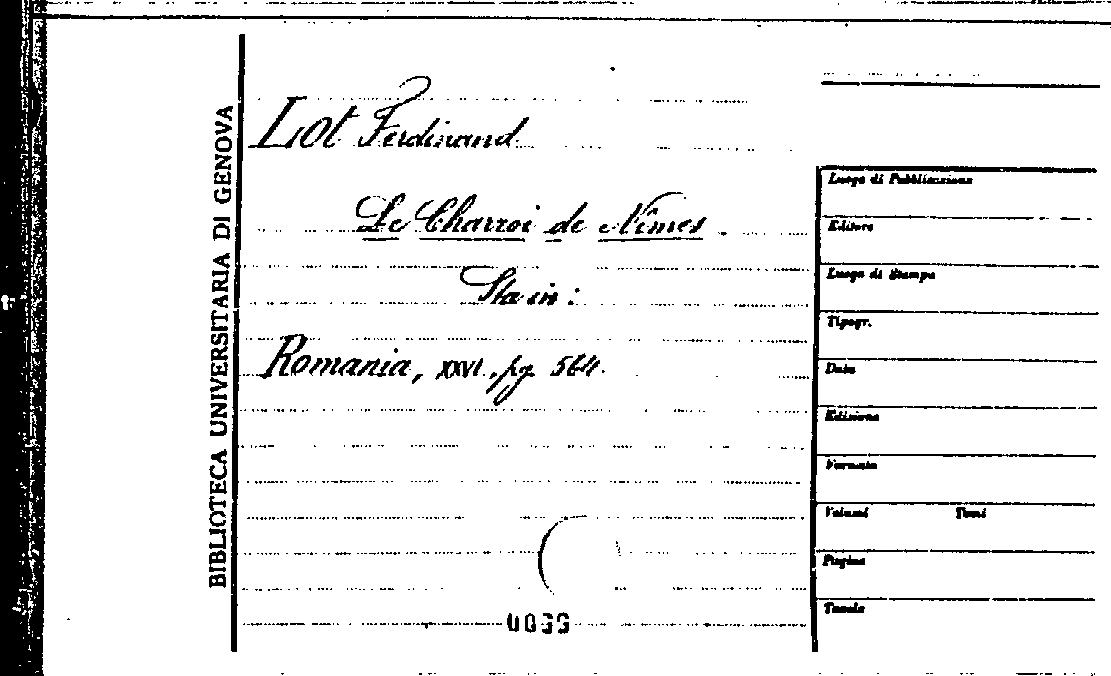 BIBLIOTECA UNIVERSITARIA DI GENOVA
Lot Ferdinand
Le Charroi de Nîmes
Sta in:
Romania, XXVI., pg. 564.
Luogo di Pubblicazione
Editore
Luogo di Stampa
Tipogr.
Data
Edizione
Formato
Volumi Tomi
Pagine
Tavole